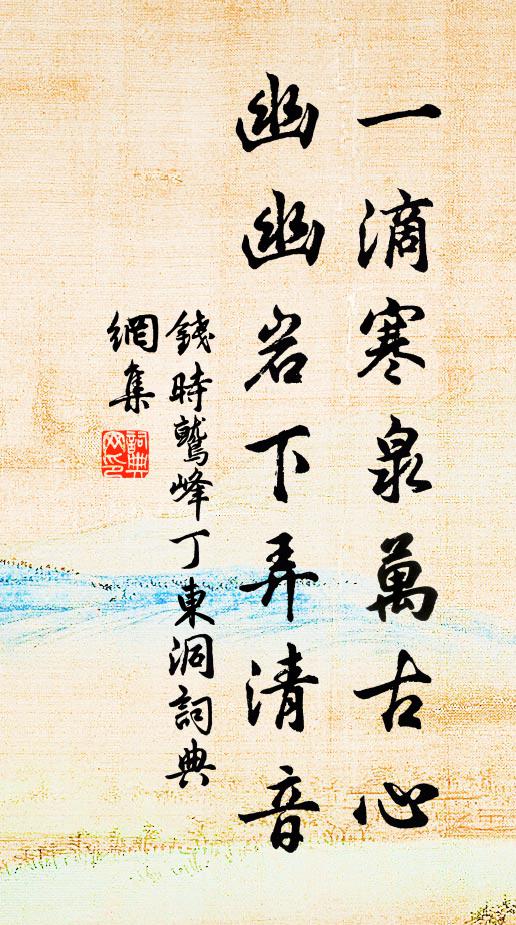 一滴寒泉萬古心
幽幽岩下弄清音
錢時鷲峰丁東洞詞典
網集
詞典
网印